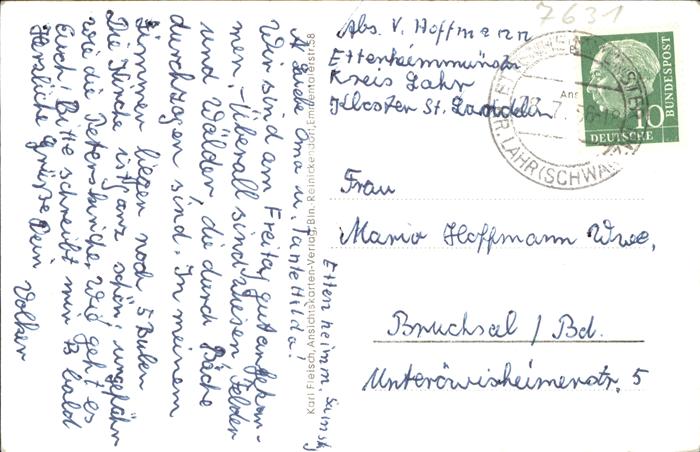 7631
Abs. V. Hoffmann
Ettenheimmünster
Kreis Lahr
Kloster St. Landolin
DEUTSCHE BUNDESPOST
10
Frau
Maria Hoffmann Wwe,
Bruchsal / Bd.
Unteröwisheimerstr. 5
Karl Fleisch, Ansichtskarten-Verlag, Bln.-Reinickendorf, Emmentalerstr. 58
Ettenheim
Liebe Oma u. Tante Hilda!
Wir sind am Freitag gut angekom-
men. Überall sind Wiesen, Felder
und Wälder, die durch Bäche
durchzogen sind. In meinem
Zimmer liegen noch 5 Buben
Die Kirche ist ganz schön, ungefähr
wie die Peterskirche. Wie geht es
Euch? Bitte schreibt mir bald
Herzliche Grüße Dein
Volker